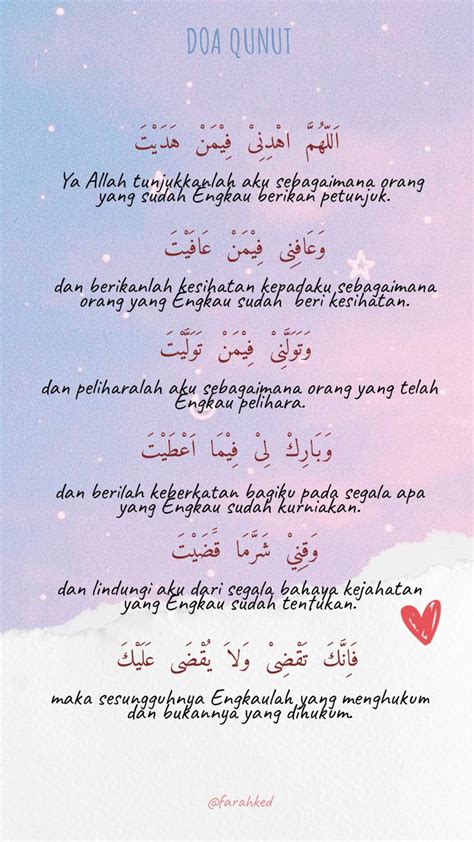 DOA QUNUT
اَللّٰهُمَّ اهْدِنِيْ فِيْمَنْ هَدَيْتَ
Ya Allah tunjukkanlah aku sebagaimana orang
yang sudah Engkau berikan petunjuk.
وَعَافِنِى فِيْمَنْ عَافَيْتَ
dan berikanlah kesihatan kepadaku sebagaimana
orang yang Engkau sudah beri kesihatan.
وَتَوَلَّنِيْ فِيْمَنْ تَوَلَّيْتَ
dan peliharalah aku sebagaimana orang yang telah
Engkau pelihara.
وَبَارِكْ لِىْ فِيْمَا اَعْطَيْتَ
dan berilah keberkatan bagiku pada segala apa
yang Engkau sudah kurniakan.
وَقِنِيْ شَرَّمَا قََضَيْتَ
dan lindungi aku dari segala bahaya kejahatan
yang Engkau sudah tentukan.
فَاِنَّكَ تَقْضِىْ وَلاَ يُقْضَى عَلَيْكَ
maka sesungguhnya Engkaulah yang menghukum
dan bukannya yang dihukum.
@farahked